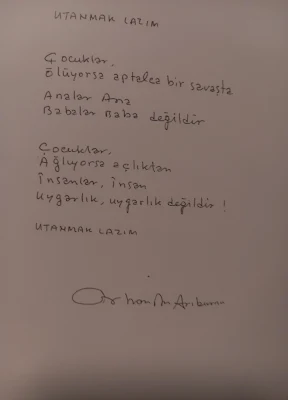 UTANMAK LAZIM
Çocuklar,
Ölüyorsa aptalca bir savaşta
Analar Ana
Babalar Baba değildir
Çocuklar,
Ağlıyorsa açlıktan
İnsanlar, İnsan
Uygarlık, uygarlık değildir !
UTANMAK LAZIM
Orhan Arıburnu